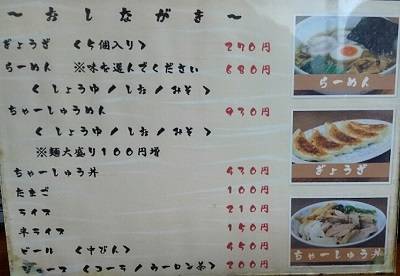 ～おしながき～
ぎょうざ 〈5個入り〉 270円
らーめん ※味を選んでください 680円
〈しょうゆ/しお/みそ〉
ちゃーしゅうめん 930円
〈しょうゆ/しお/みそ〉
※麺大盛り100円増
ちゃーしゅう丼 430円
たまご 100円
ライス 210円
半ライス 150円
ビール 〈中びん〉 450円
ジュース 〈コーラ/ウーロン茶〉 200円
らーめん
ぎょうざ
ちゃーしゅう丼